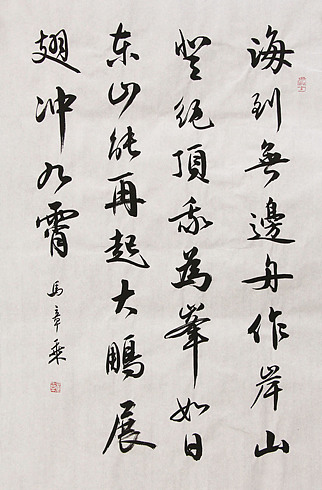 海到無邊舟作岸山
登绝頂我為峯如日
东山能再起大鵬展
翅冲九霄
马章乘